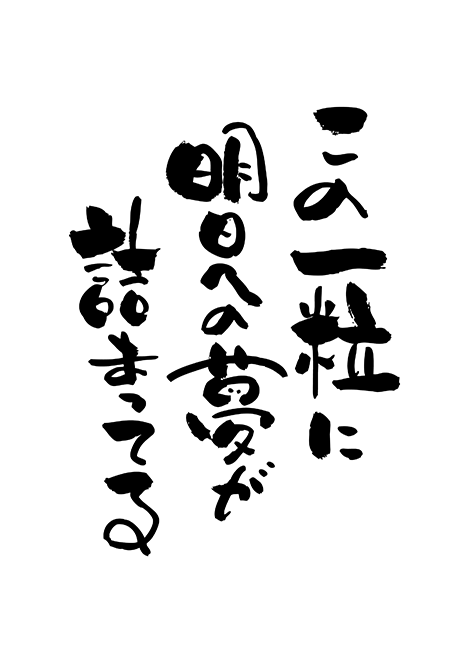 この一粒に
明日への夢が
詰まってる